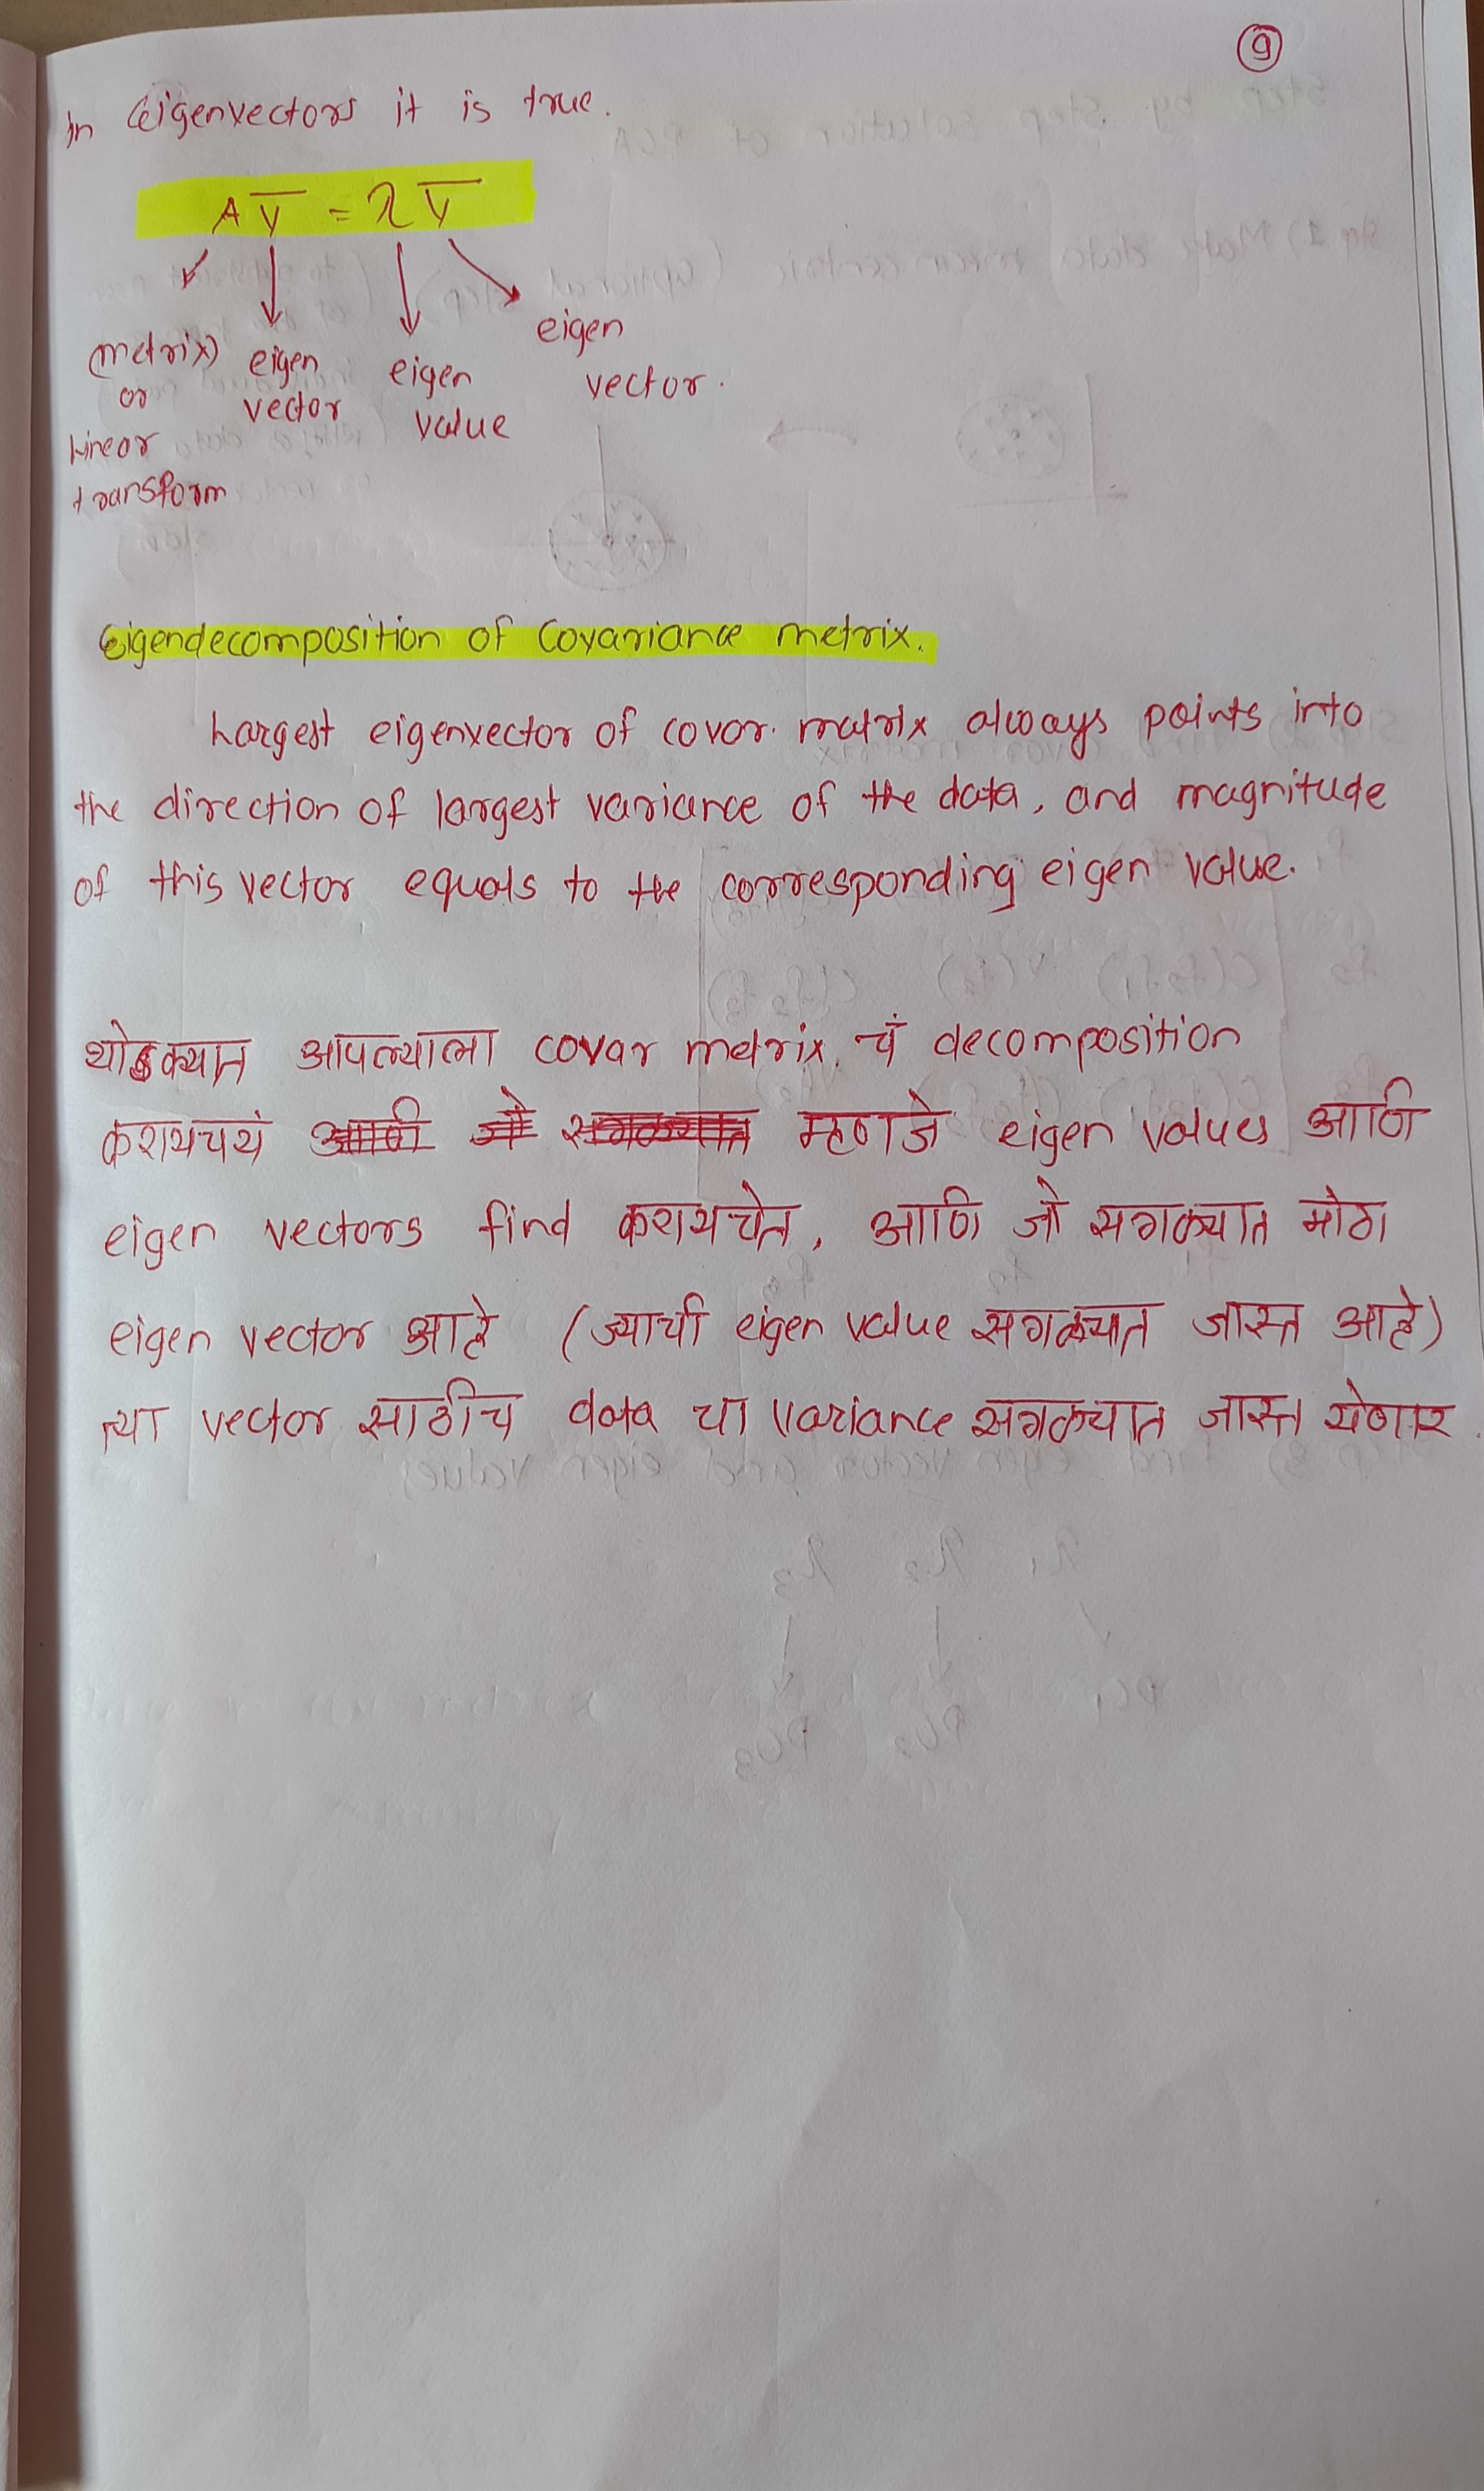 9
In Eigenvectors it is true.
A v̅ = λ v̅
(metrix) or Linear transform
eigen vector
eigen value
eigen vector.
Eigendecomposition of Covariance metrix.
Largest eigenvector of covar. matrix always points into
the direction of largest variance of the data, and magnitude
of this vector equals to the corresponding eigen value.
थोडक्यात आपल्याला covar metrix चं decomposition
करायचयं म्हणजे eigen values आणि
eigen vectors find करायचेत, आणि जो सगळ्यात मोठा
eigen vector आहे (ज्याची eigen value सगळ्यात जास्त आहे)
त्या vector साठीच data चा variance सगळ्यात जास्त येणार.